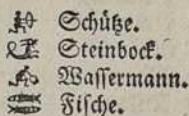 Schütze.
Steinbock.
Wassermann.
Fische.